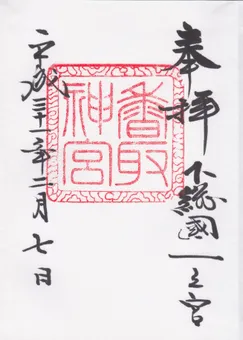 奉拝
下総國一之宮
香取
神宮
平成三十一年二月七日